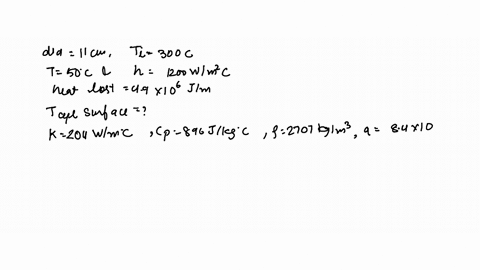 dia = 11 cm, Ti = 300 C
T = 50°C & h = 1200 W/m²C
heat lost = 4.9 × 10⁶ J/m
T cyl surface = ?
K = 204 W/m°C , Cp = 896 J/kg°C , ρ = 2707 kg/m³, α = 8.4 × 10